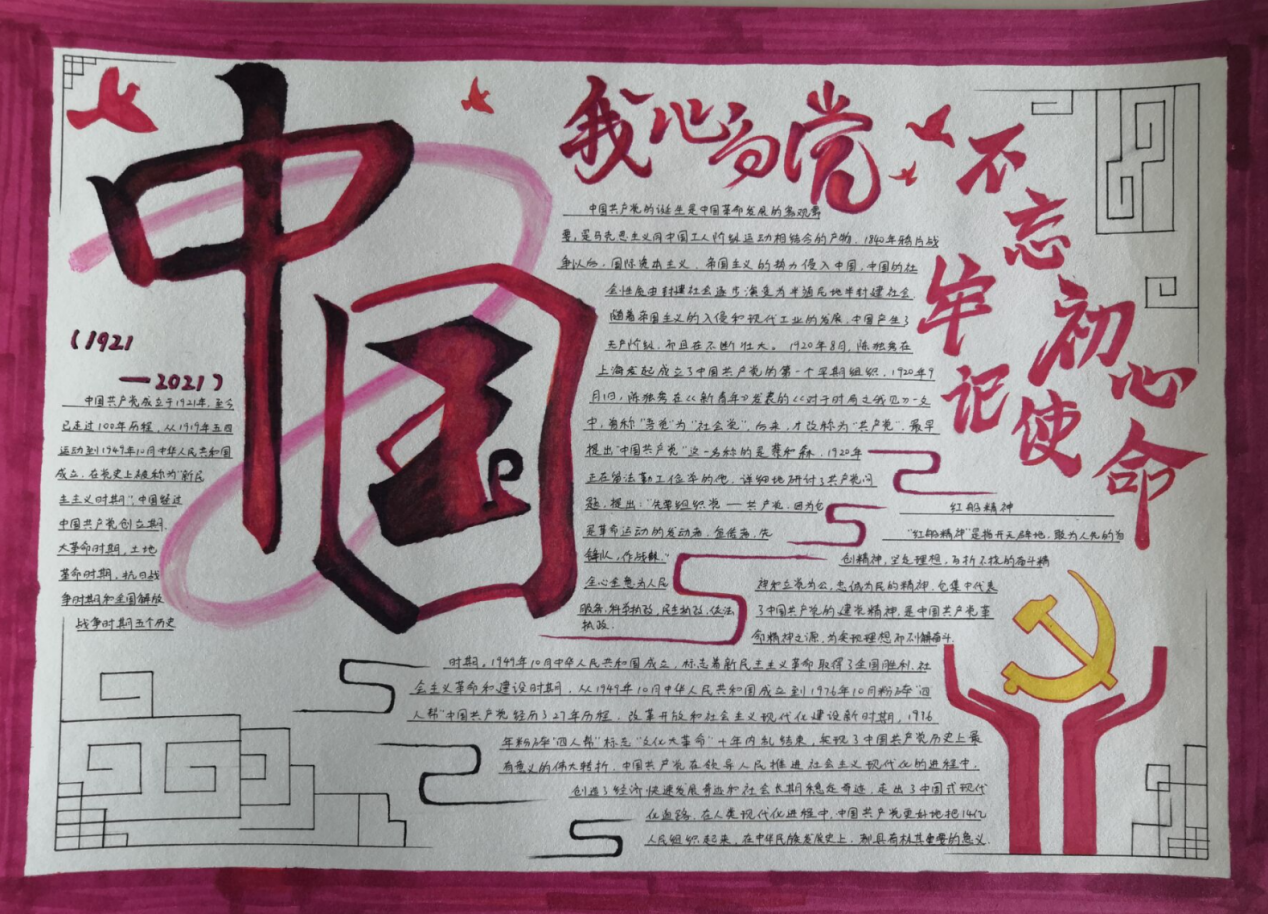 中国
我心向党
不忘初心
牢记使命
(1921
—2021)
中国共产党成立于1921年，至今
已走过100年历程，从1919年五四
运动到1949年10月中华人民共和国
成立，在党史上被称为"新民
主主义时期"；中国经过
中国共产党创立期，
大革命时期，土地
革命时期，抗日战
争时期和全国解放
战争时期五个历史
中国共产党的诞生是中国革命发展的客观需
要，是马克思主义同中国工人阶级运动相结合的产物，1840年鸦片战
争以后，国际资本主义、帝国主义的势力侵入中国，中国的社
会性质由封建社会逐步演变为半殖民地半封建社会，
随着帝国主义的入侵和现代工业的发展，中国产生了
无产阶级，而且在不断壮大。1920年8月，陈独秀在
上海发起成立了中国共产党的第一个早期组织，1920年9
月1日，陈独秀在《新青年》发表的《对于时局之我见》一文
中，曾称"吾党"为"社会党"，后来，才改称为"共产党"，最早
提出"中国共产党"这一名称的是蔡和森，1920年
主在留法勤工俭学的他，详细地研讨了共产党问
题，提出："先要组织党——共产党，因为它
是革命运动的发动者，宣传者，先
锋队，作战部。"
全心全意为人民
服务，科学执政，民主执政，依法
执政．
红船精神
"红船精神"是指开天辟地，敢为人先的首
创精神，坚定理想，百折不挠的奋斗精
神和立党为公，忠诚为民的精神，它集中代表
了中国共产党的建党精神，是中国共产党革
命精神之源，为实现理想而不懈奋斗．
时期，1949年10月中华人民共和国成立，标志着新民主主义革命取得了全国胜利，社
会主义革命和建设时期，从1949年10月中华人民共和国成立到1976年10月粉碎"四
人帮"中国共产党经历了27年历程，改革开放和社会主义现代化建设新时期，1976
年粉碎"四人帮"标志"文化大革命"十年内乱结束，实现了中国共产党历史上最
有意义的伟大转折，中国共产党在领导人民推进社会主义现代化的进程中，
创造了经济快速发展奇迹和社会长期稳定奇迹，走出了中国式现代
化道路，在人类现代化进程中，中国共产党更好地把14亿
人民组织起来，在中华民族发展史上，都具有极其重要的意义．